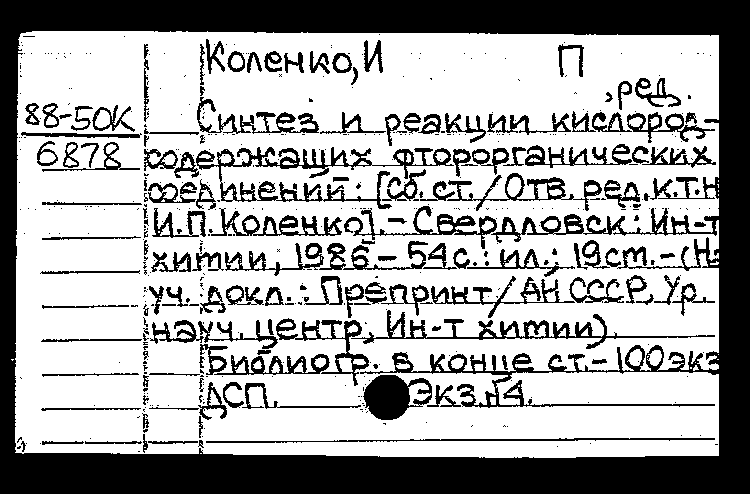 Коленко, И П
, ред.
88-50К Синтез и реакции кислород-
6878 содержащих фторорганических
соединений: [Сб. ст. / Отв. ред. к.т.н
И.П. Коленко]. - Свердловск: Ин-т
химии, 1986. - 54 с.: ил.; 19 ст. - (На
уч. докл.: Препринт / АН СССР, Ур.
науч. центр, Ин-т химии).
Библиогр. в конце ст. - 100 экз
ДСП. Экз. №4.